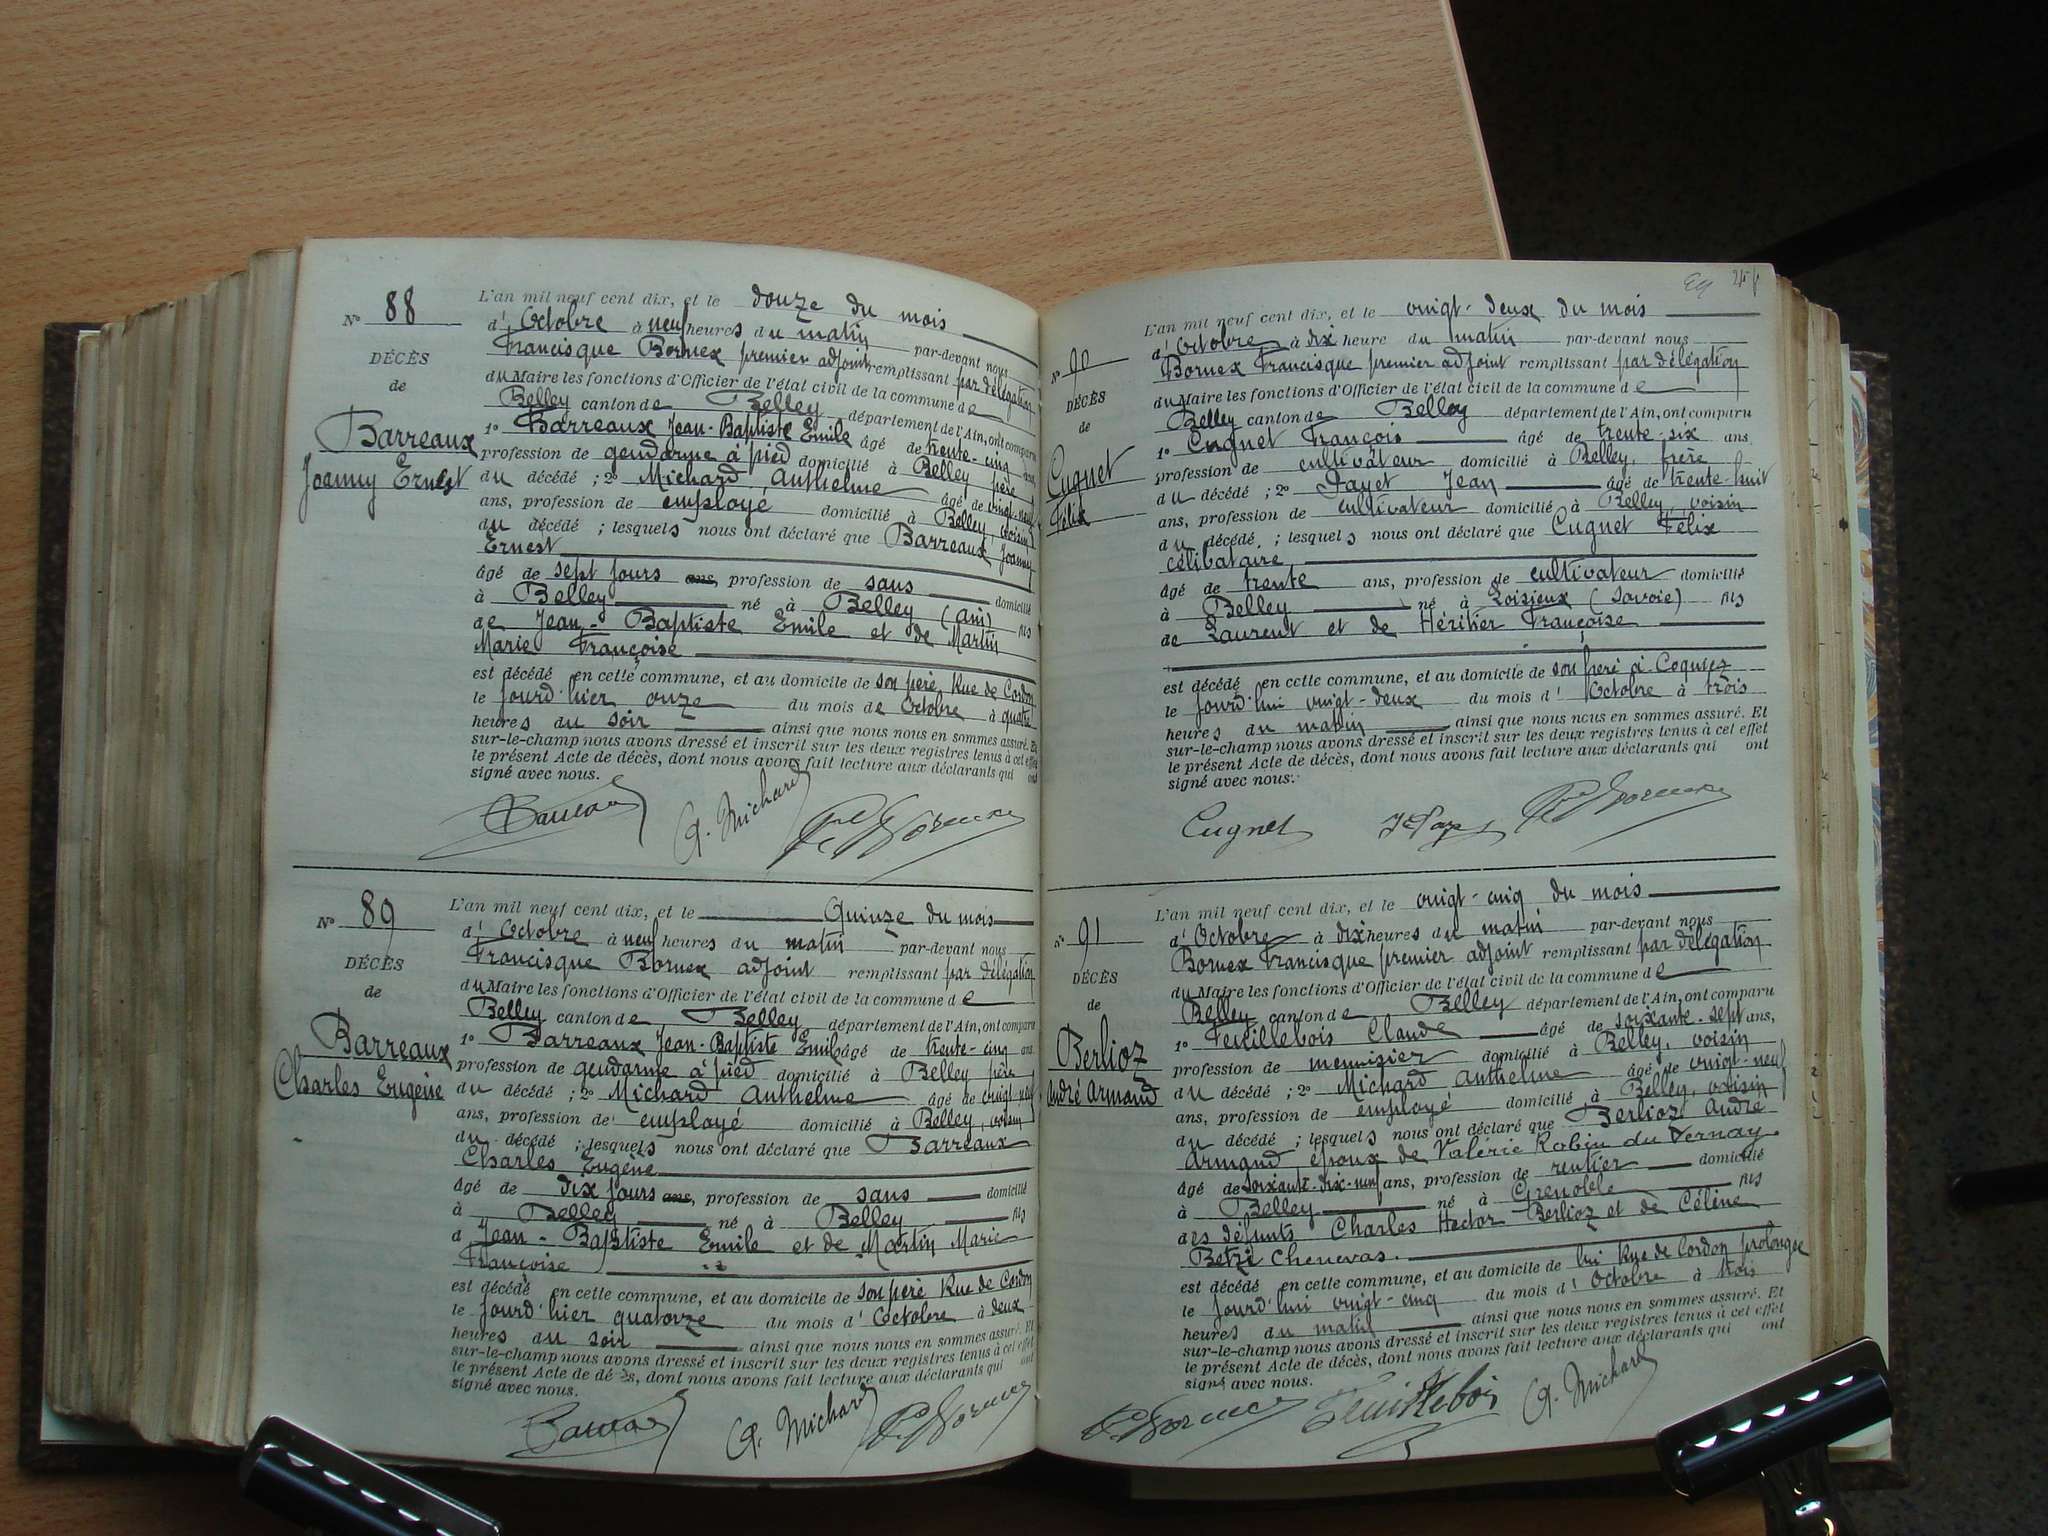 N° 88
DÉCÈS
de
Barreaux
Joanny Ernest
L'an mil neuf cent dix, et le douze du mois
d'Octobre à neuf heures du matin par-devant nous
Francisque Bornex premier adjoint remplissant par délégation
du Maire les fonctions d'Officier de l'état civil de la commune de
Belley canton de Belley département de l'Ain, ont comparu
1° Barreaux Jean-Baptiste Emile âgé de trente-cinq ans,
profession de gendarme à pied domicilié à Belley père
du décédé ; 2° Michard Anthelme âgé de vingt-neuf
ans, profession de employé domicilié à Belley, voisin
du décédé ; lesquels nous ont déclaré que Barreaux Joanny
Ernest
âgé de sept jours ans, profession de sans domicilié
à Belley né à Belley (Ain) fils
de Jean-Baptiste Emile et de Martin
Marie Françoise
est décédé en cette commune, et au domicile de son père Rue de Cordon
le jourd'hier onze du mois de Octobre à quatre
heures du soir ainsi que nous nous en sommes assuré. Et
sur-le-champ nous avons dressé et inscrit sur les deux registres tenus à cet effet
le présent Acte de décès, dont nous avons fait lecture aux déclarants qui ont
signé avec nous.
A. Michard
N° 89
DÉCÈS
de
Barreaux
Charles Eugène
L'an mil neuf cent dix, et le Quinze du mois
d'Octobre à neuf heures du matin par-devant nous
Francisque Bornex adjoint remplissant par délégation
du Maire les fonctions d'Officier de l'état civil de la commune de
Belley canton de Belley département de l'Ain, ont comparu
1° Barreaux Jean-Baptiste Emile âgé de trente-cinq ans
profession de gendarme à pied domicilié à Belley père
du décédé ; 2° Michard Anthelme âgé de vingt-neuf
ans, profession de employé domicilié à Belley, voisin
du décédé ; lesquels nous ont déclaré que Barreaux
Charles Eugène
âgé de dix jours ans, profession de sans domicilié
à Belley né à Belley fils
d Jean-Baptiste Emile et de Martin Marie
Françoise
est décédé en cette commune, et au domicile de son père Rue de Cordon
le jourd'hier quatorze du mois d'Octobre à deux
heures du soir ainsi que nous nous en sommes assuré. Et
sur-le-champ nous avons dressé et inscrit sur les deux registres tenus à cet effet
le présent Acte de décès, dont nous avons fait lecture aux déclarants qui ont
signé avec nous.
A. Michard
N° 90
DÉCÈS
de
Cugnet
Félix
L'an mil neuf cent dix, et le vingt-deux du mois
d'Octobre à dix heure du matin par-devant nous
Bornex Francisque premier adjoint remplissant par délégation
du Maire les fonctions d'Officier de l'état civil de la commune de
Belley canton de Belley département de l'Ain, ont comparu
1° Cugnet François âgé de trente-six ans
profession de cultivateur domicilié à Belley, frère
du décédé ; 2° Jean âgé de trente-huit
ans, profession de cultivateur domicilié à Belley, voisin
du décédé ; lesquels nous ont déclaré que Cugnet Félix
célibataire
âgé de trente ans, profession de cultivateur domicilié
à Belley né à Loisieux (Savoie) fils
de Laurent et de Héritier Françoise
est décédé en cette commune, et au domicile de son frère
le jourd'hui vingt-deux du mois d'Octobre à trois
heures du matin ainsi que nous nous en sommes assuré. Et
sur-le-champ nous avons dressé et inscrit sur les deux registres tenus à cet effet
le présent Acte de décès, dont nous avons fait lecture aux déclarants qui ont
signé avec nous.
Cugnet
N° 91
DÉCÈS
de
Berlioz
André Armand
L'an mil neuf cent dix, et le vingt-cinq du mois
d'Octobre à dix heures du matin par-devant nous
Bornex Francisque premier adjoint remplissant par délégation
du Maire les fonctions d'Officier de l'état civil de la commune de
Belley canton de Belley département de l'Ain, ont comparu
1° Feuillebois Claude âgé de soixante-sept ans,
profession de menuisier domicilié à Belley, voisin
du décédé ; 2° Michard Anthelme âgé de vingt-neuf
ans, profession de employé domicilié à Belley, voisin
du décédé ; lesquels nous ont déclaré que Berlioz André
Armand, époux de Valérie Robin du Vernay
âgé de soixante-dix-neuf ans, profession de rentier domicilié
à Belley né à Grenoble fils
des défunts Charles Hector Berlioz et de Céline
Betzi Chenevas.
est décédé en cette commune, et au domicile de lui Rue de Cordon prolongée
le jourd'hui vingt-cinq du mois d'Octobre à trois
heures du matin ainsi que nous nous en sommes assuré. Et
sur-le-champ nous avons dressé et inscrit sur les deux registres tenus à cet effet
le présent Acte de décès, dont nous avons fait lecture aux déclarants qui ont
signé avec nous.
Feuillebois A. Michard